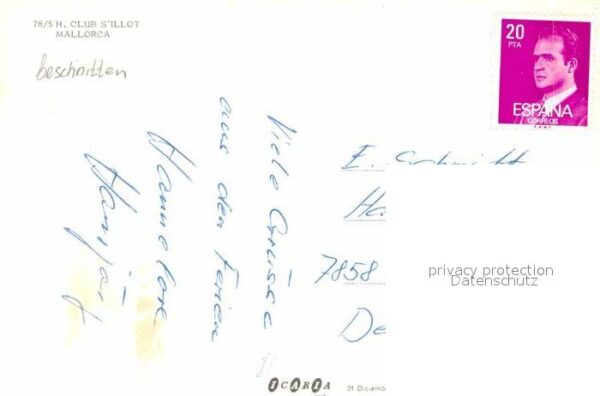 78/5 H. CLUB S'ILLOT
MALLORCA
beschnitten
20
PTA
ESPAÑA
CORREOS
Viele Grüsse
aus den Ferien
Hannelore
E. Schmidt
Ha
7858
De
privacy protection
Datenschutz
ICARIA
31 Diciemb